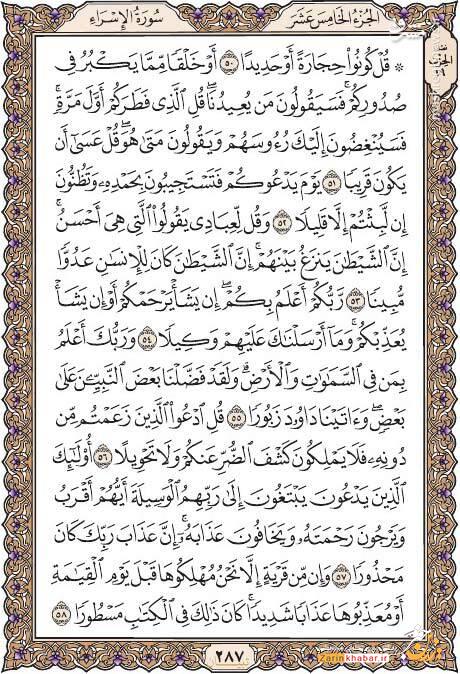 سُورَةُ الإِسْرَاءِ الجُزءُ الخَامِسَ عَشَرَ
۞ قُلْ كُونُوا۟ حِجَارَةً أَوْ حَدِيدًا ٥٠ أَوْ خَلْقًا مِّمَّا يَكْبُرُ فِى
صُدُورِكُمْ ۚ فَسَيَقُولُونَ مَن يُعِيدُنَا ۖ قُلِ ٱلَّذِى فَطَرَكُمْ أَوَّلَ مَرَّةٍ ۚ
فَسَيُنْغِضُونَ إِلَيْكَ رُءُوسَهُمْ وَيَقُولُونَ مَتَىٰ هُوَ ۖ قُلْ عَسَىٰٓ أَن
يَكُونَ قَرِيبًا ٥١ يَوْمَ يَدْعُوكُمْ فَتَسْتَجِيبُونَ بِحَمْدِهِۦ وَتَظُنُّونَ
إِن لَّبِثْتُمْ إِلَّا قَلِيلًا ٥٢ وَقُل لِّعِبَادِى يَقُولُوا۟ ٱلَّتِى هِىَ أَحْسَنُ ۚ
إِنَّ ٱلشَّيْطَـٰنَ يَنزَغُ بَيْنَهُمْ ۚ إِنَّ ٱلشَّيْطَـٰنَ كَانَ لِلْإِنسَـٰنِ عَدُوًّا
مُّبِينًا ٥٣ رَّبُّكُمْ أَعْلَمُ بِكُمْ ۖ إِن يَشَأْ يَرْحَمْكُمْ أَوْ إِن يَشَأْ
يُعَذِّبْكُمْ ۚ وَمَآ أَرْسَلْنَـٰكَ عَلَيْهِمْ وَكِيلًا ٥٤ وَرَبُّكَ أَعْلَمُ
بِمَن فِى ٱلسَّمَـٰوَٰتِ وَٱلْأَرْضِ ۗ وَلَقَدْ فَضَّلْنَا بَعْضَ ٱلنَّبِيِّـۧنَ عَلَىٰ
بَعْضٍ ۖ وَءَاتَيْنَا دَاوُۥدَ زَبُورًا ٥٥ قُلِ ٱدْعُوا۟ ٱلَّذِينَ زَعَمْتُم مِّن
دُونِهِۦ فَلَا يَمْلِكُونَ كَشْفَ ٱلضُّرِّ عَنكُمْ وَلَا تَحْوِيلًا ٥٦ أُو۟لَـٰٓئِكَ
ٱلَّذِينَ يَدْعُونَ يَبْتَغُونَ إِلَىٰ رَبِّهِمُ ٱلْوَسِيلَةَ أَيُّهُمْ أَقْرَبُ
وَيَرْجُونَ رَحْمَتَهُۥ وَيَخَافُونَ عَذَابَهُۥٓ ۚ إِنَّ عَذَابَ رَبِّكَ كَانَ
مَحْذُورًا ٥٧ وَإِن مِّن قَرْيَةٍ إِلَّا نَحْنُ مُهْلِكُوهَا قَبْلَ يَوْمِ ٱلْقِيَـٰمَةِ
أَوْ مُعَذِّبُوهَا عَذَابًا شَدِيدًا ۚ كَانَ ذَٰلِكَ فِى ٱلْكِتَـٰبِ مَسْطُورًا ٥٨
٢٨٧
Zarinkhabar.ir